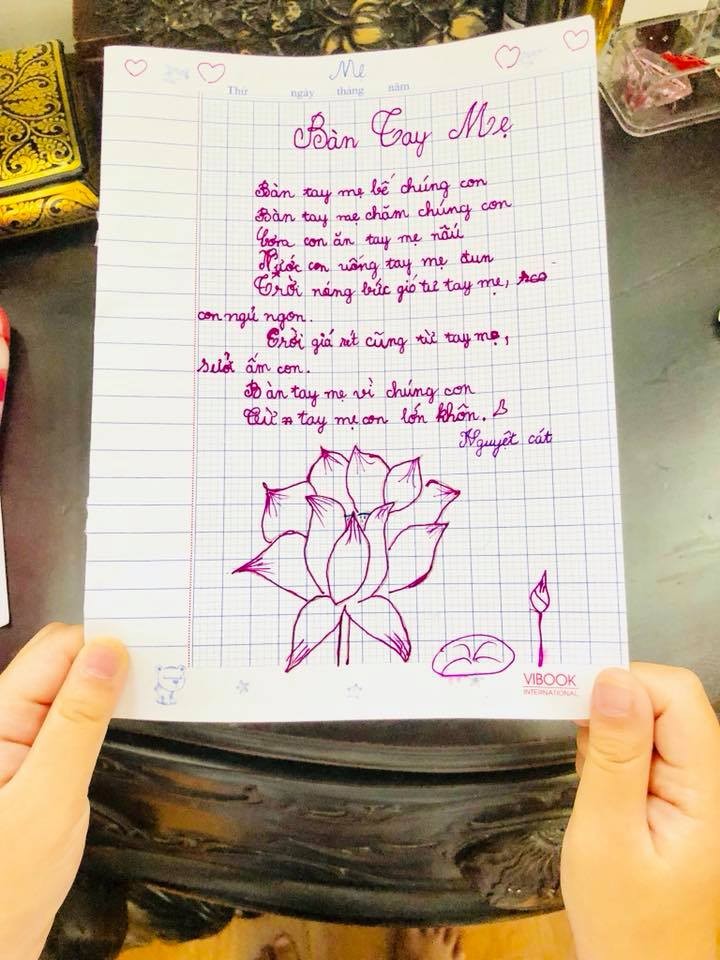 Mẹ
Thứ ngày tháng năm
Bàn Tay Mẹ
Bàn tay mẹ bế chúng con
Bàn tay mẹ chăm chúng con
Cơm con ăn tay mẹ nấu
Nước con uống tay mẹ đun
Trời nóng bức gió từ tay mẹ,
con ngủ ngon.
Trời giá rét cũng từ tay mẹ,
sưởi ấm con.
Bàn tay mẹ vì chúng con
Từ tay mẹ con lớn khôn.
Nguyệt cát
VIBOOK
INTERNATIONAL